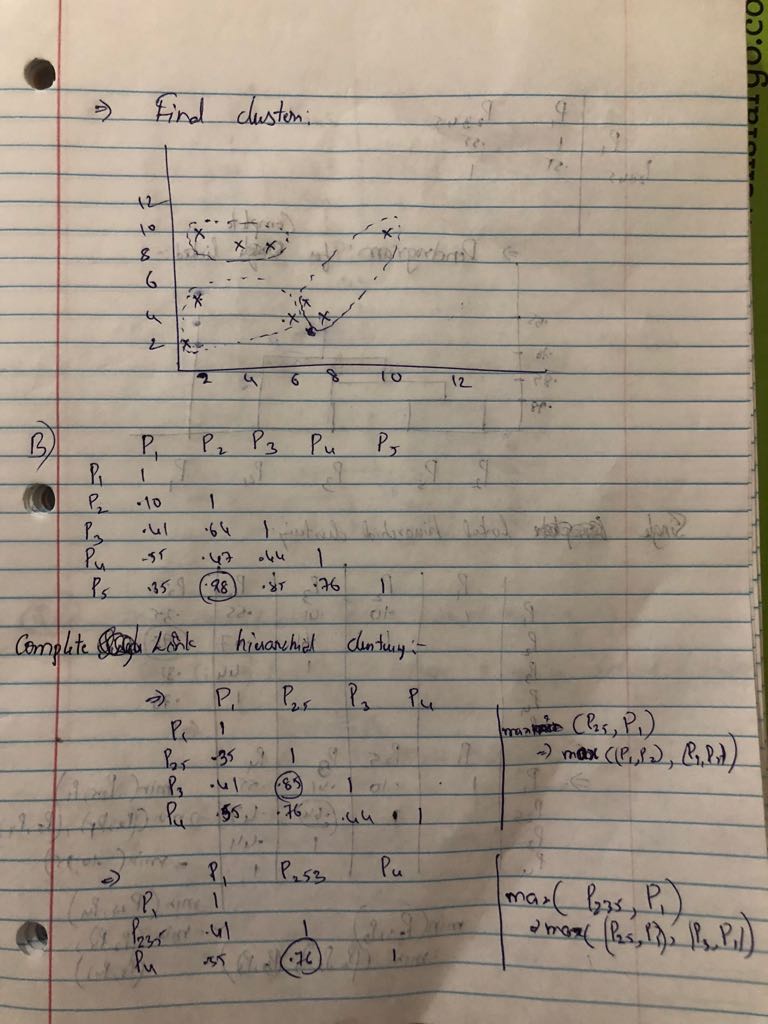 ⇒ Find clusters:
12
10
8
6
4
2
2 4 6 8 10 12
B)
P1 P2 P3 P4 P5
P1 1
P2 .10 1
P3 .41 .64 1
P4 .55 .47 .44 1
P5 .35 .98 .85 .76 1
Complete Link hierarchial clustering:-
⇒ P1 P25 P3 P4
P1 1
P25 .35 1
P3 .41 .85 1
P4 .55 .76 .44 1
max (P25, P1)
⇒ max ((P1,P2), (P5,P1))
⇒ P1 P253 P4
P1 1
P235 .41 1
P4 .55 .76 1
max( P235, P1)
⇒ max( (P25, P1), (P3, P1))